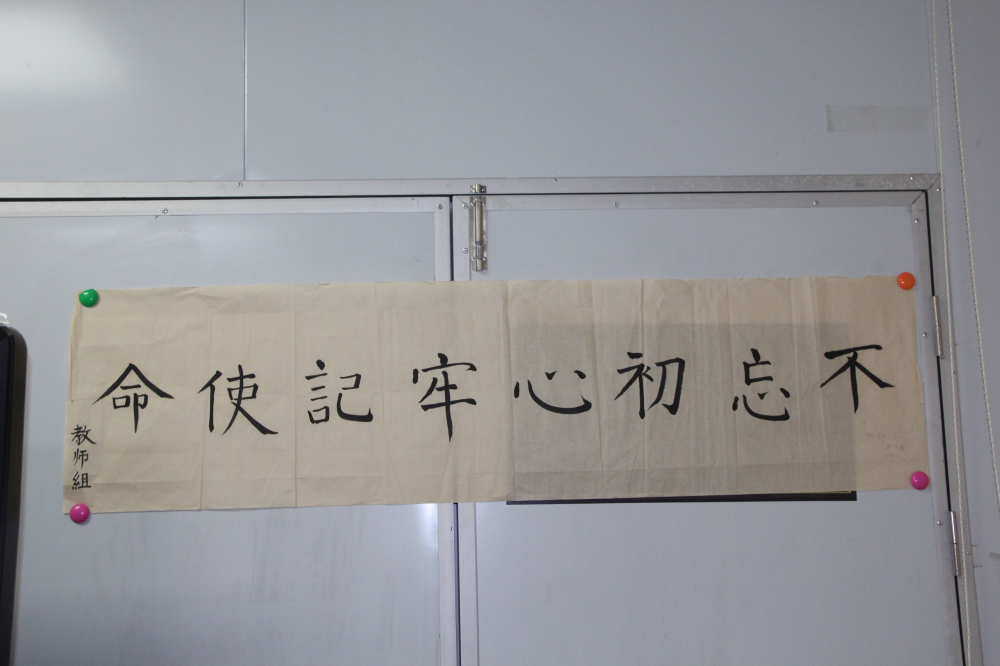 不忘初心牢記使命
教师組